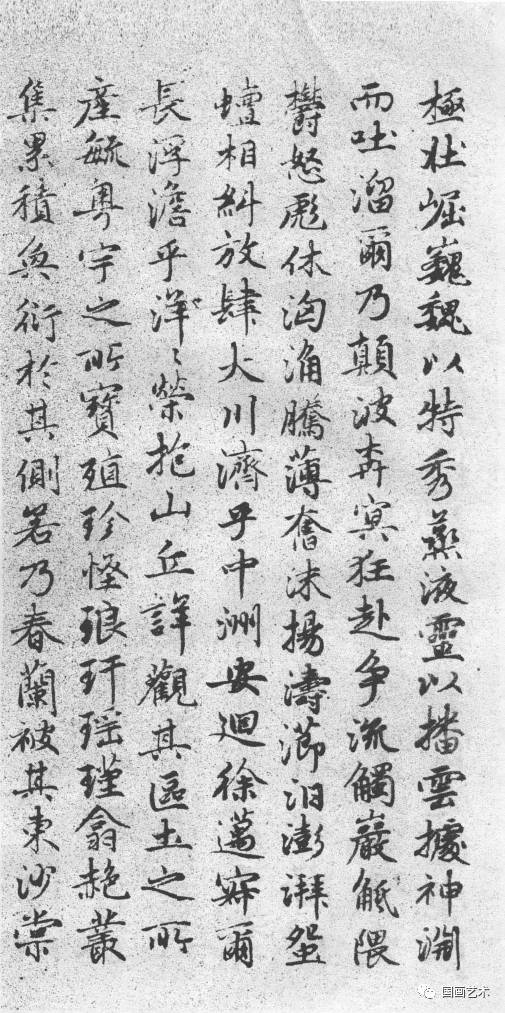 極壯崛巍魏以特秀蒸液靈以播雲據神淵
而吐溜爾乃顛波奔冥狂赴争流觸巖觝隈
欝怒彪休洶涌騰薄奮沫揚濤瀄汩澎湃蜿
蟺相糾放肆大川濟乎中洲安迴徐邁寂爾
長浮澹乎洋〻榮抱山丘詳觀其區土之所
產毓粵宇之所寶殖珍怪琅玕瑶瑾翕赩叢
集累積奐衍於其側若乃春蘭被其東沙棠
国画艺术